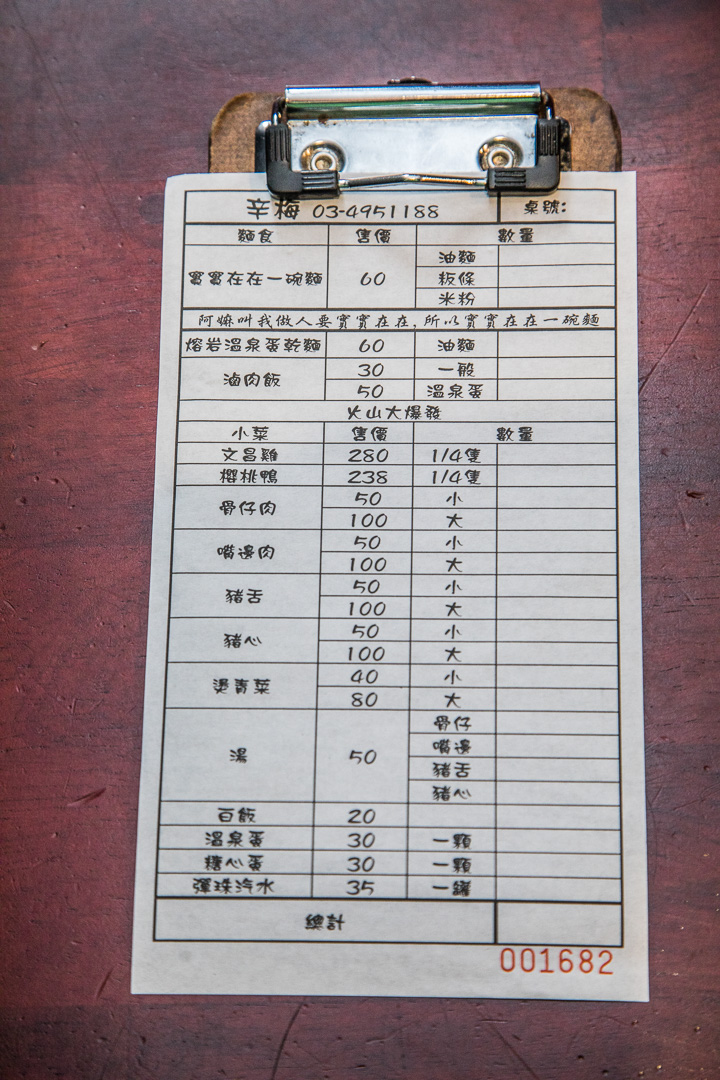 辛梅 03-4951188 桌號:
麵食 售價 數量
實實在在一碗麵 60 油麵
粄條
米粉
阿嬤叫我做人要實實在在,所以實實在在一碗麵
熔岩溫泉蛋乾麵 60 油麵
滷肉飯 30 一般
50 溫泉蛋
火山大爆發
小菜 售價 數量
文昌雞 280 1/4隻
櫻桃鴨 238 1/4隻
骨仔肉 50 小
100 大
嘴邊肉 50 小
100 大
豬舌 50 小
100 大
豬心 50 小
100 大
燙青菜 40 小
80 大
湯 50 骨仔
嘴邊
豬舌
豬心
白飯 20
溫泉蛋 30 一顆
糖心蛋 30 一顆
彈珠汽水 35 一罐
總計
001682